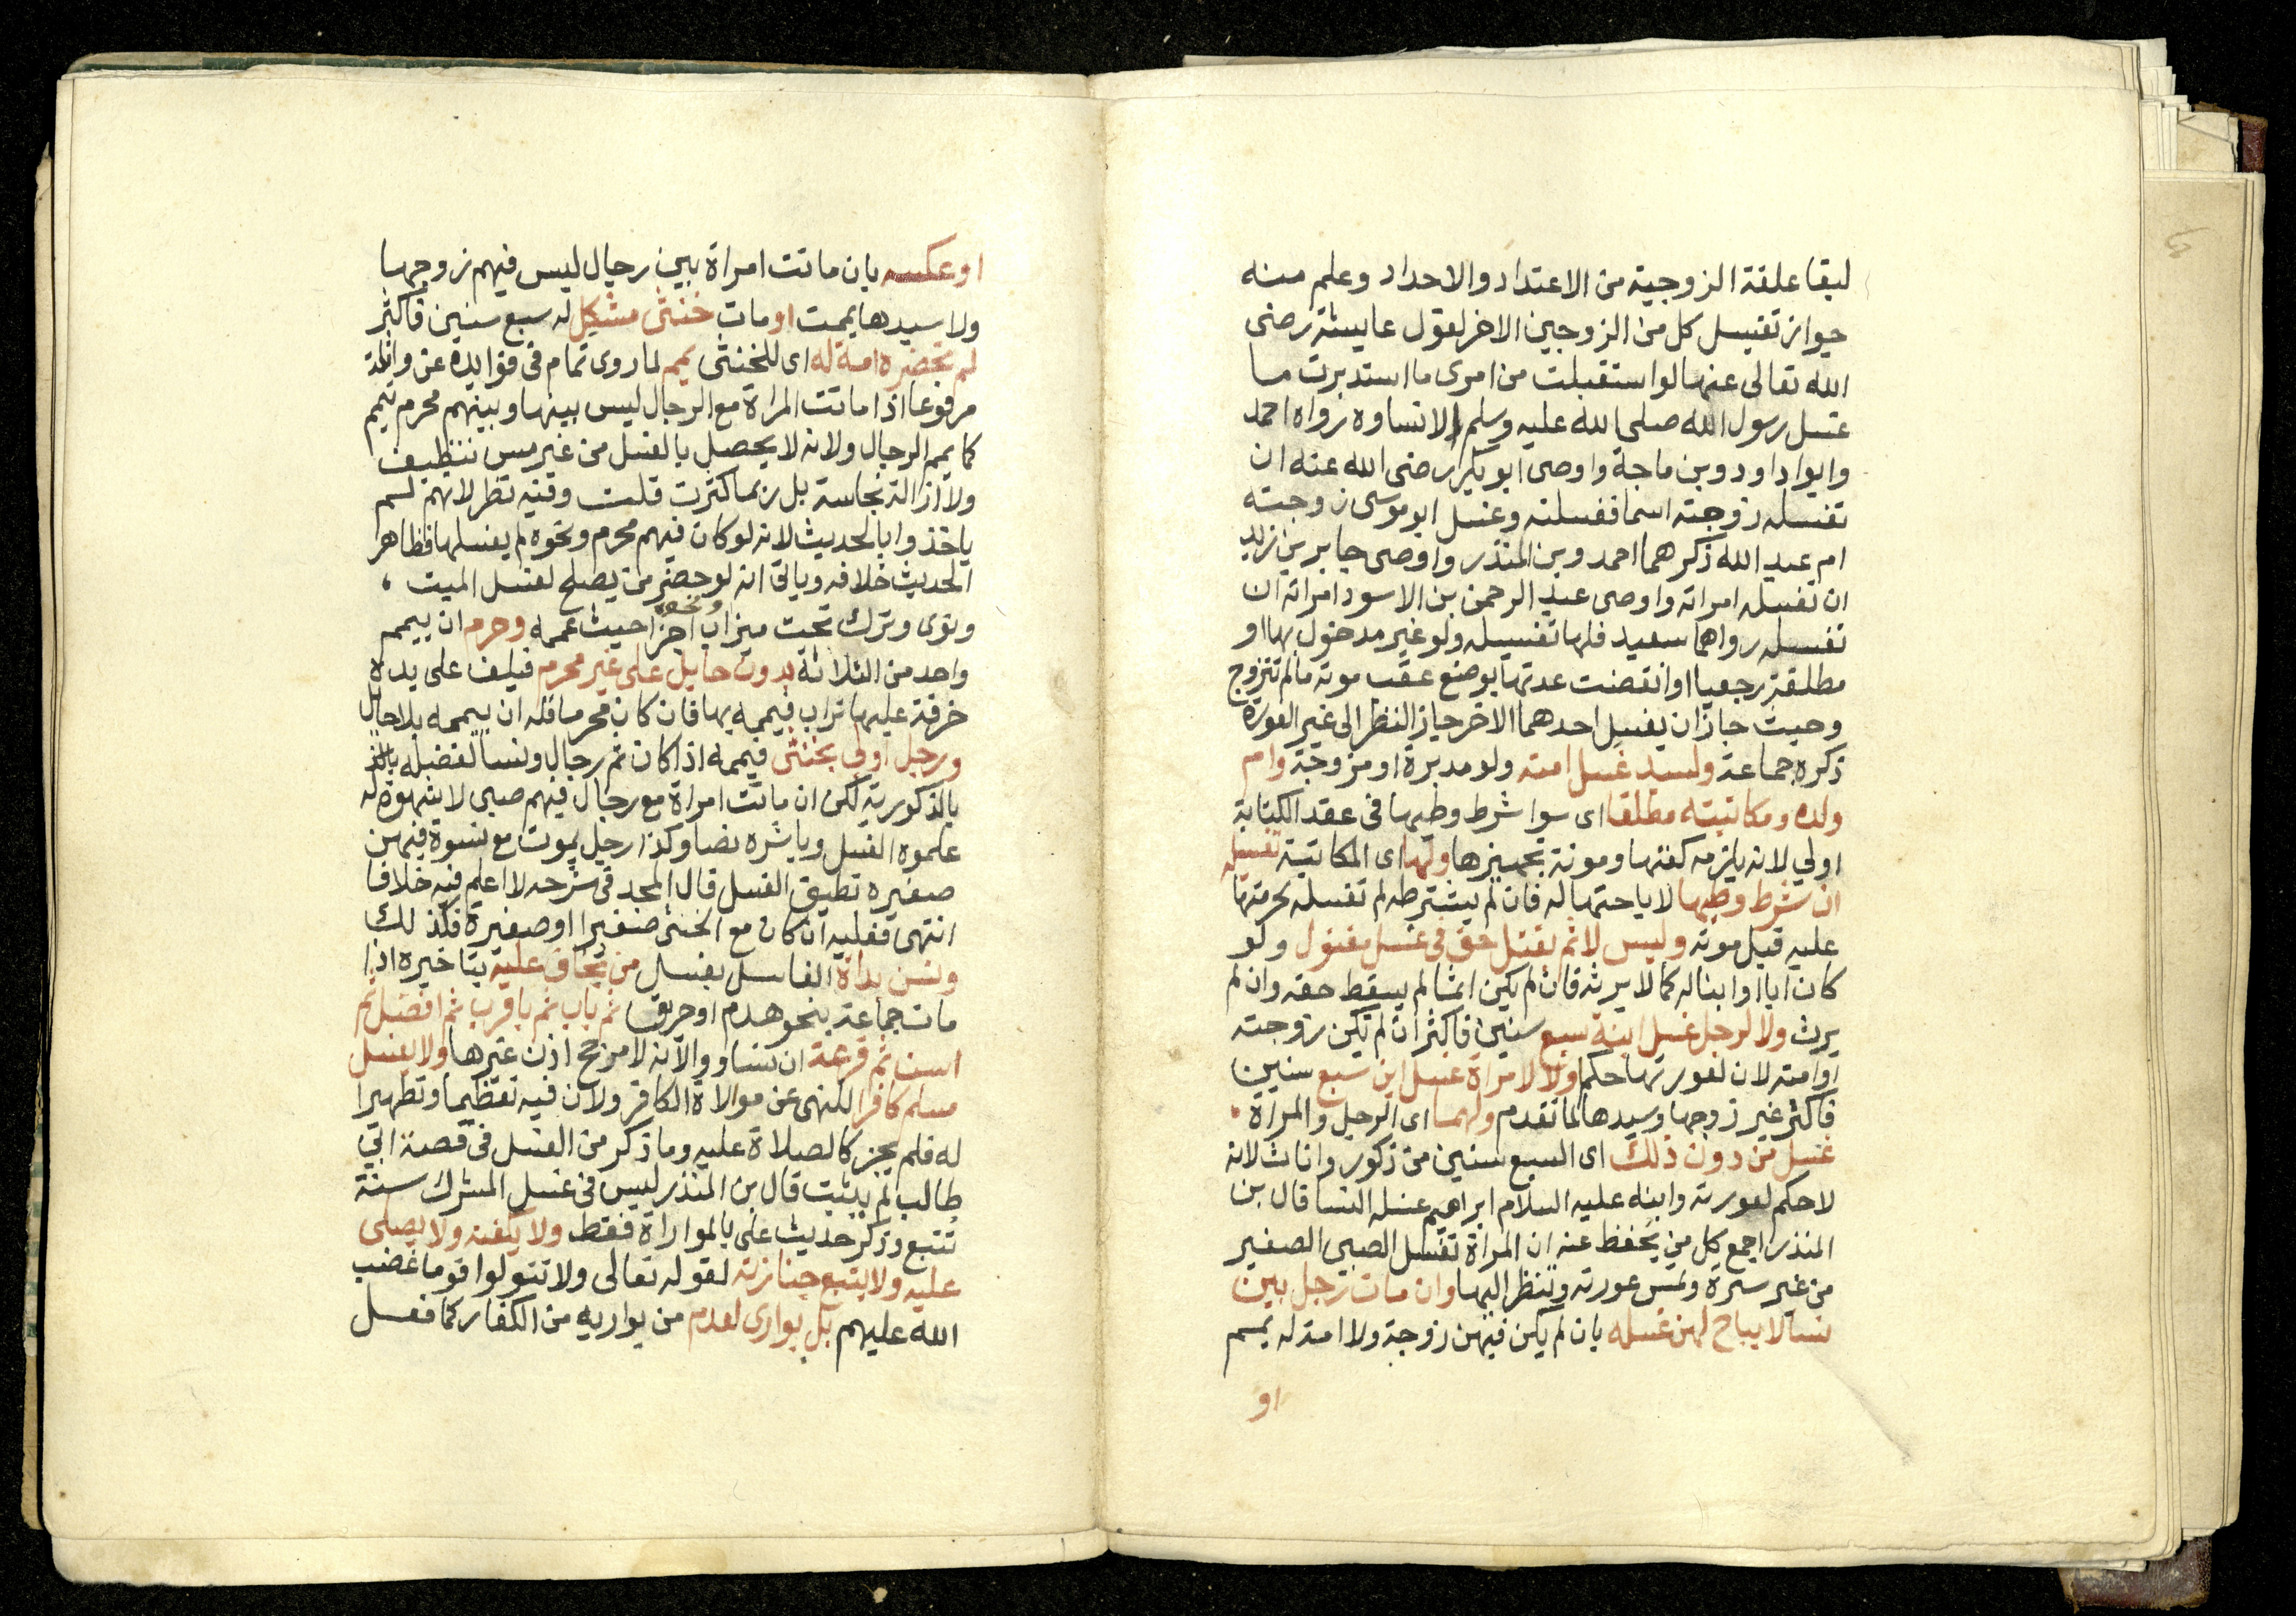 لبقا علقة الزوجية من الاعتداد والاحداد وعلم منه
جواز تغسيل كل من الزوجين الاخر لقول عايشة رضى
الله تعالى عنها لو استقبلت من امرى ما استدبرت ما
غسل رسول الله صلى الله عليه وسلم الا نساوه رواه احمد
وابوا داود وبن ماجة واوصى ابو بكر رضى الله عنه ان
تغسله زوجته اسما فغسلته وغسل ابو موسى زوجته
ام عبد الله ذكرهما احمد وبن المنذر واوصى جابر بن زيد
ان تغسله امراته واوصى عبد الرحمن بن الاسود امراته ان
تغسله رواهما سعيد فلها تغسيله ولو غير مدخول بها او
مطلقة رجعيا او انقضت عدتها بوضع عقب موته ما لم تتزوج
وحيث جاز ان يغسل احدهما الاخر جاز النظر الى غير العورة
ذكره جماعة ولسيد غسل امته ولو مدبرة او مزوجة وام
ولده ومكاتبته مطلقا اى سوا شرط وطيها فى عقد الكتابة
اولي لانه يلزمه كفنها ومونة تجهيزها ولها اى المكاتبة تغسيله
ان شرط وطيها لاباحتها له فان لم يشترطه لم تغسله لحرمتها
عليه قبل موته وليس لاثم بقتل حق فى غسل مقتول ولو
كان ابا او ابنا له كما لا يرثه فان لم يكن اثما لم يسقط حقه وان لم
يرث ولا لرجل غسل ابنة سبع سنين فاكثر ان لم تكن زوجته
او امته لان لعورتها حكما ولا لامراة غسل ابن سبع سنين
فاكثر غير زوجها وسيدها لما تقدم ولهما اى الرجل والمراة
غسل من دون ذلك اى السبع سنين من ذكور واناث لانه
لا حكم لعورته وابنه عليه السلام ابراهيم غسله النسا قال بن
المنذر اجمع كل من يحفظ عنه ان المراة تغسل الصبى الصغير
من غير سترة وتمس عورته وتنظر اليها وان مات رجل بين
نسا لا يباح لهن غسله بان لم يكن فيهن زوجة ولا امة له يمم
او
او عكسه بان ماتت امراة بين رجال ليس فيهم زوجها
ولا سيدها يممت او مات خنثى مشكل له سبع سنين فاكثر
لم تحضره امة له اى للخنثى يمم لما روى تمام فى فوايده عن واثلة
مرفوعا اذا ماتت المراة مع الرجال ليس بينها وبينهم محرم تيمم
كما يمم الرجال ولانه لا يحصل بالغسل من غير مس تنظيف
ولا ازالة نجاسة بل ربما كثرت قلت وفيه نظر لانهم لم
ياخذوا بالحديث لانه لو كان فيهم محرم ونحوه لم يغسلها فظاهر
الحديث خلافه وياتى انه لو حضر من يصلح لغسل الميت
ونوى وترك تحت ميزاب ونحوه اجزا حيث عممه وحرم ان ييمم
واحد من الثلاثة بدون حايل على غير محرم فيلف على يده
خرقة عليها تراب فييممه بها فان كان محرما فله ان ييممه بلا حايل
ورجل اولى بخنثى فييممه اذا كان ثم رجال ونسا لفضله
بالذكورية لكن ان ماتت امراة مع رجال فيهم صبي لا شهوة له
علموه الغسل وباشره نصا وكذا رجل يموت مع نسوة فيهن
صغيره تطيق الغسل قال المجد فى شرحه لا اعلم فيه خلافا
انتهى فعليه ان كان مع الخنثى صغيرا او صغيرة فكذلك
وتسن بداة الغاسل بغسل من يخاف عليه بتاخيره اذا
مات جماعة بنحو هدم او حريق ثم باب ثم باقرب ثم افضل ثم
اسن ثم قرعة ان تساووا لانه لا مرجح اذن غيرها ولا يغسل
مسلم كافرا للنهى عن موالاة الكافر ولان فيه تعظيما وتطهيرا
له فلم يجز كالصلاة عليه وما ذكر من الغسل فى قصة ابي
طالب لم يثبت قال بن المنذر ليس فى غسل المشرك سنة
تتبع وذكر حديث على بالمواراة فقط ولا يكفنه ولا يصلى
عليه ولا يتبع جنازته لقوله تعالى ولا تتولوا قوما غضب
الله عليهم بل يوارى لعدم من يواريه من الكفار كما فعل